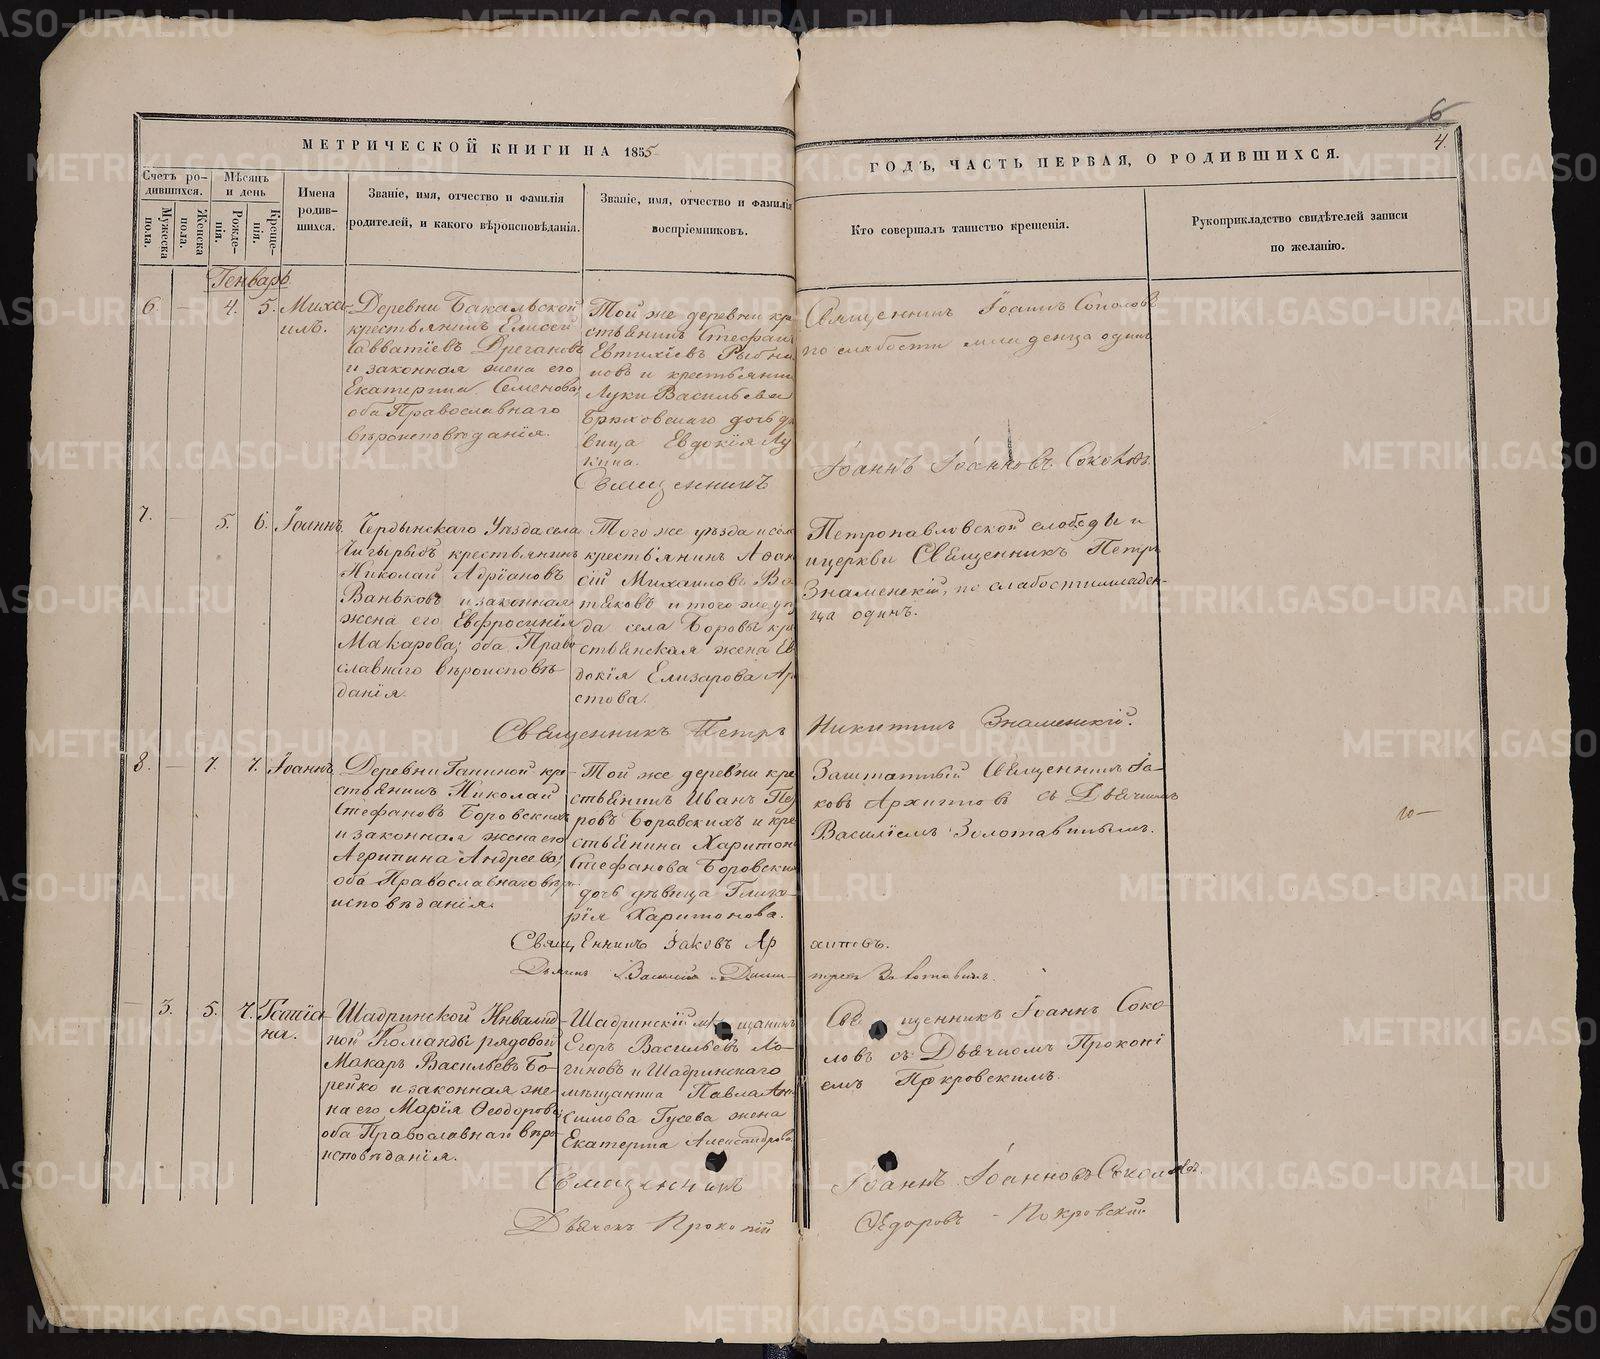 METRIKI.GASO-URAL.RU
6
4.
МЕТРИЧЕСКОЙ КНИГИ НА 1855
ГОДЪ, ЧАСТЬ ПЕРВАЯ, О РОДИВШИХСЯ.
Счетъ ро-
дившихся.
Мужеска
пола.
Женска
пола.
Мѣсяцъ
и день
Рожде-
нія.
Креще-
нія.
Имена
родив-
шихся.
Званіе, имя, отчество и фамилія
родителей, и какого вѣроисповѣданія.
Званіе, имя, отчество и фамилія
воспріемниковъ.
Кто совершалъ таинство крещенія.
Рукоприкладство свидѣтелей записи
по желанію.
Генварь
6. — 4. 5. Миха-
илъ.
Деревни Бакальской
крестьянинъ Елисей
Савватіевъ Дреганов
и законная жена его
Екатерина Семенова,
оба Православнаго
вѣроисповѣданія.
Той же деревни кре
стьянинъ Стефанъ
Евтихіевъ Рыбни
ковъ и крестьянина
Луки Васильева
Брюховскаго дочь дѣ
вица Евдокія Лу
кина.
Священникъ Іоаннъ Соколовъ
по слабости младенца одинъ
Священникъ Іоаннъ Іоанновъ Соколовъ.
7. — 5. 6. Іоаннъ.
Чердынскаго Уѣзда села
крестьянинъ
Николай Адріановъ
Ваньковъ и законная
жена его Евфросинія
Макарова; оба Право
славнаго вѣроисповѣ-
данія.
Того же уѣзда и села
крестьянинъ Афана
сій Михаиловъ
и того же уѣз
да села Боровъ кре
стьянская жена Ев
докія Елизарова
стова.
Петропавловской слободы и
церкви Священникъ Петръ
Знаменскій, по слабости младен-
ца одинъ.
Священникъ Петръ Никитинъ Знаменскій.
8. — 7. 7. Іоаннъ.
Деревни Ганиной кре-
стьянинъ Николай
Стефановъ Боровскихъ
и законная жена его
Агрипина Андреева;
оба Православнаго вѣро-
исповѣданія.
Той же деревни кре
стьянинъ Иванъ Пет
ровъ Боровскихъ и кре
стьянина Харитона
Стефанова Боровских
дочь дѣвица Глике-
рія Харитонова.
Заштатный Священникъ Іа-
ковъ Архиповъ съ Дьячкомъ
Василіемъ Золотавинымъ.
Священникъ Іаковъ Архиповъ.
Дьячекъ Василій Дими-тріев Золотавинъ.
— 3. 5. 7. Татіа-
на.
Шадринской Инвалид
ной Команды рядовой
Макаръ Васильевъ Бо-
рейко и законная же-
на его Марія Ѳеодорова;
оба Православнаго вѣро-
исповѣданія.
Шадринскій мѣщанинъ
Егоръ Васильевъ Ло-
гиновъ и Шадринскаго
мѣщанина Павла Ак
симова Гусева жена
Екатерина Александрова.
Священникъ Іоаннъ Соко-
ловъ съ Дьячкомъ Прокопі
емъ Покровскимъ.
Священникъ Іоаннъ Іоанновъ Соколовъ.
Дьячекъ Прокопій Ѳедоровъ Покровскій